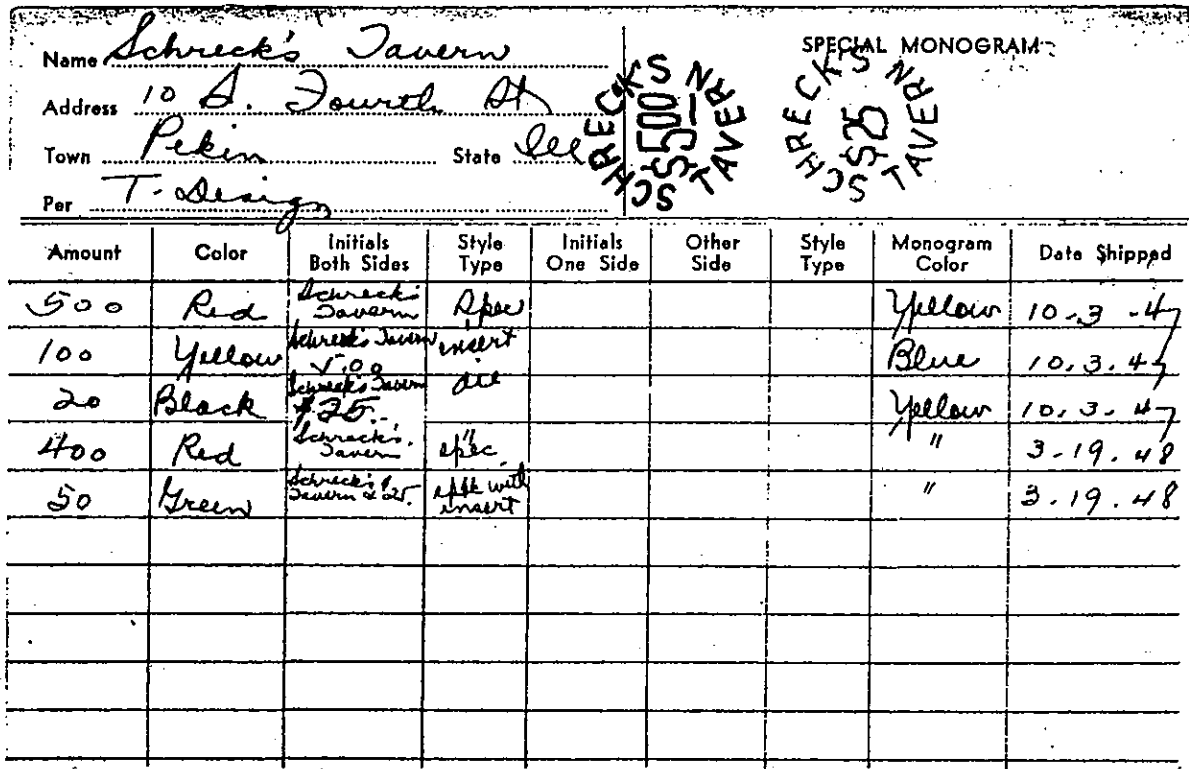 Name Schreck's Tavern
Address 10 S. Fourth St
Town Pekin State Ill
Per T- Design
SPECIAL MONOGRAM
SCHRECK'S TAVERN $500
SCHRECK'S TAVERN $25
Amount Color Initials Both Sides Style Type Initials One Side Other Side Style Type Monogram Color Date Shipped
500 Red Schreck's Tavern Spec Yellow 10-3-47
100 Yellow Schreck's Tavern 5.00 insert Blue 10.3.47
20 Black Schreck's Tavern $25. die Yellow 10.3.47
400 Red Schreck's Tavern " spec " 3-19.48
50 Green Schreck's Tavern $25. spec with insert " 3-19.48